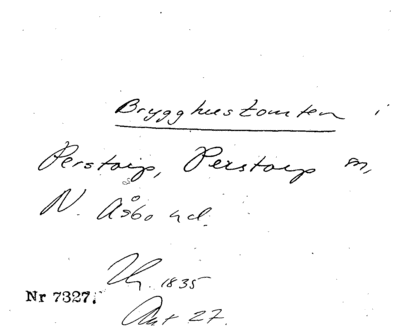 Brygghustomten i
Perstorp, Perstorp sn,
N. Åsbo hd.
Lh. 1835
Nr 7327.
Akt 27.